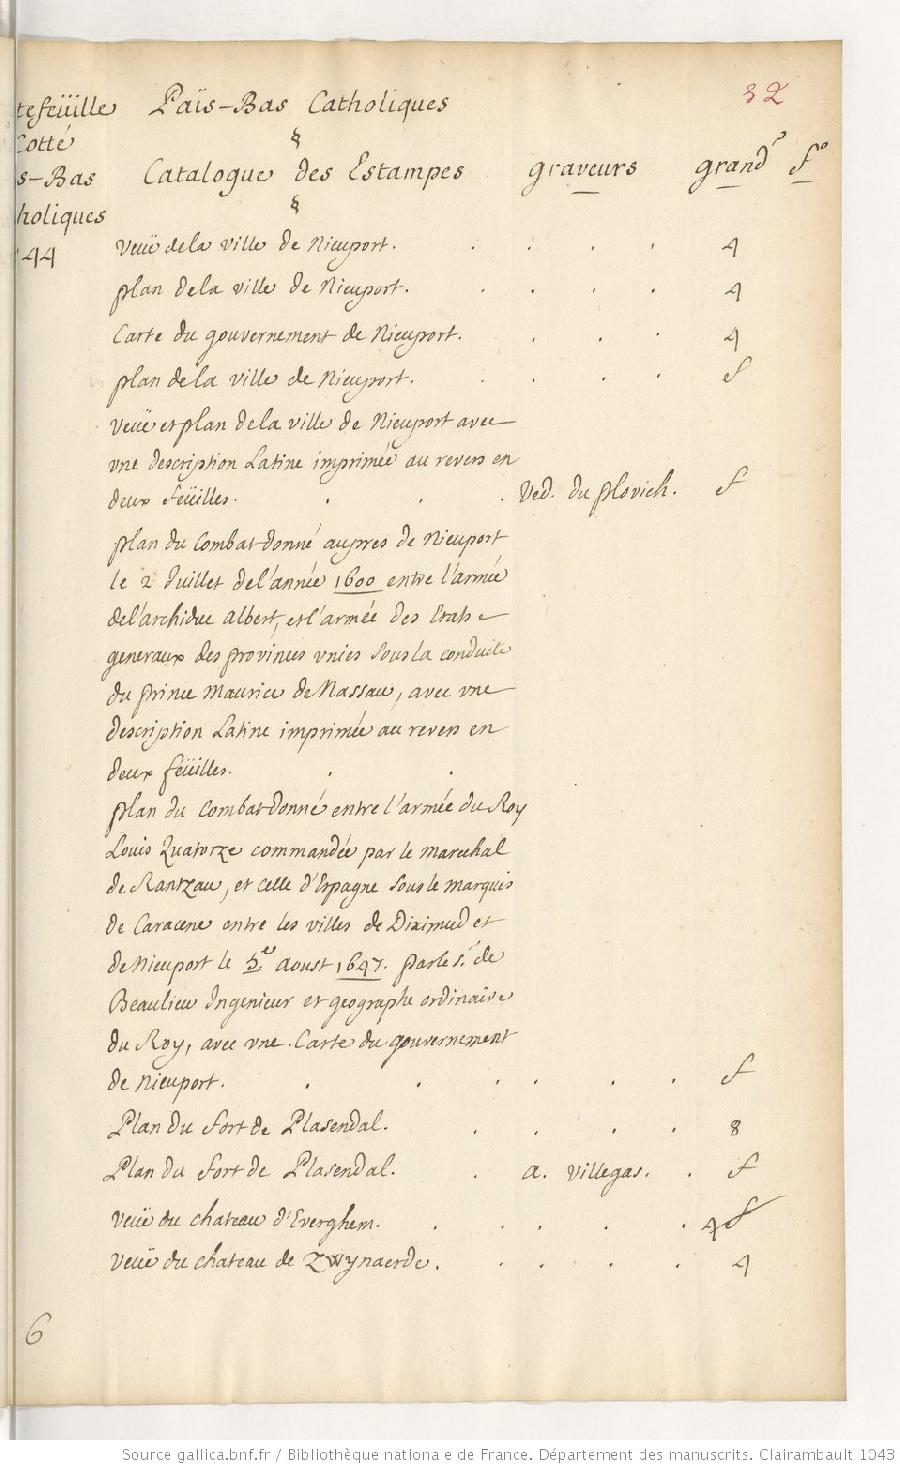 tefeüille Païs-Bas Catholiques 32
Cotté §
s-Bas Catalogue des Estampes graveurs grandr. fo
holiques §
44 veuë de la ville de Nieuport. 4
plan de la ville de Nieuport. 4
Carte du gouvernement de Nieuport. 4
plan de la ville de Nieuport. f
veuë et plan de la ville de Nieuport avec
vne description Latine imprimée au revers en
deux feüilles. Ved. du plovich. f
plan du Combat donné aupres de Nieuport
le 2 Juillet de l'année 1600 entre l'armée
de l'archiduc albert, et l'armée des Etats
generaux des provinces vnies sous la conduite
du prince Maurice de Nassau, avec vne
description Latine imprimée au revers en
deux feüilles.
plan du Combat donné entre l'armée du Roy
Louis Quatorze commandée par le marechal
de Rantzau, et celle d'Espagne sous le marquis
de Caracene entre les villes de Diximud et
de Nieuport le 5e aoust 1647. par le sr. de
Beaulieu Ingenieur et geographe ordinaire
du Roy, avec vne Carte du gouvernement
de Nieuport. f
Plan du fort de Plasendal. 8
Plan du fort de Plasendal. a. villegas. f
veuë du chateau d'Everghem. 4 f
veuë du chateau de Zwynaerde. 4
6
Source gallica.bnf.fr / Bibliothèque nationa e de France. Département des manuscrits. Clairambault 1043